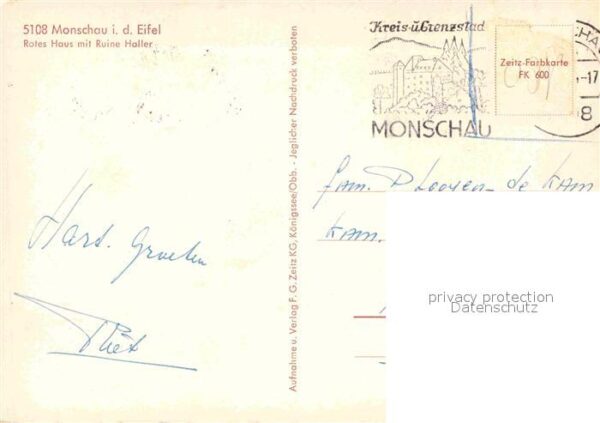 5108 Monschau i. d. Eifel
Rotes Haus mit Ruine Haller
Kreis-u Grenzstad
MONSCHAU
Zeitz-Farbkarte
FK 600
-17
8
Fam. P
de
Hart. Groeten
Piet
Aufnahme u. Verlag F. G. Zeitz KG, Königssee/Obb. - Jeglicher Nachdruck verboten
privacy protection
Datenschutz